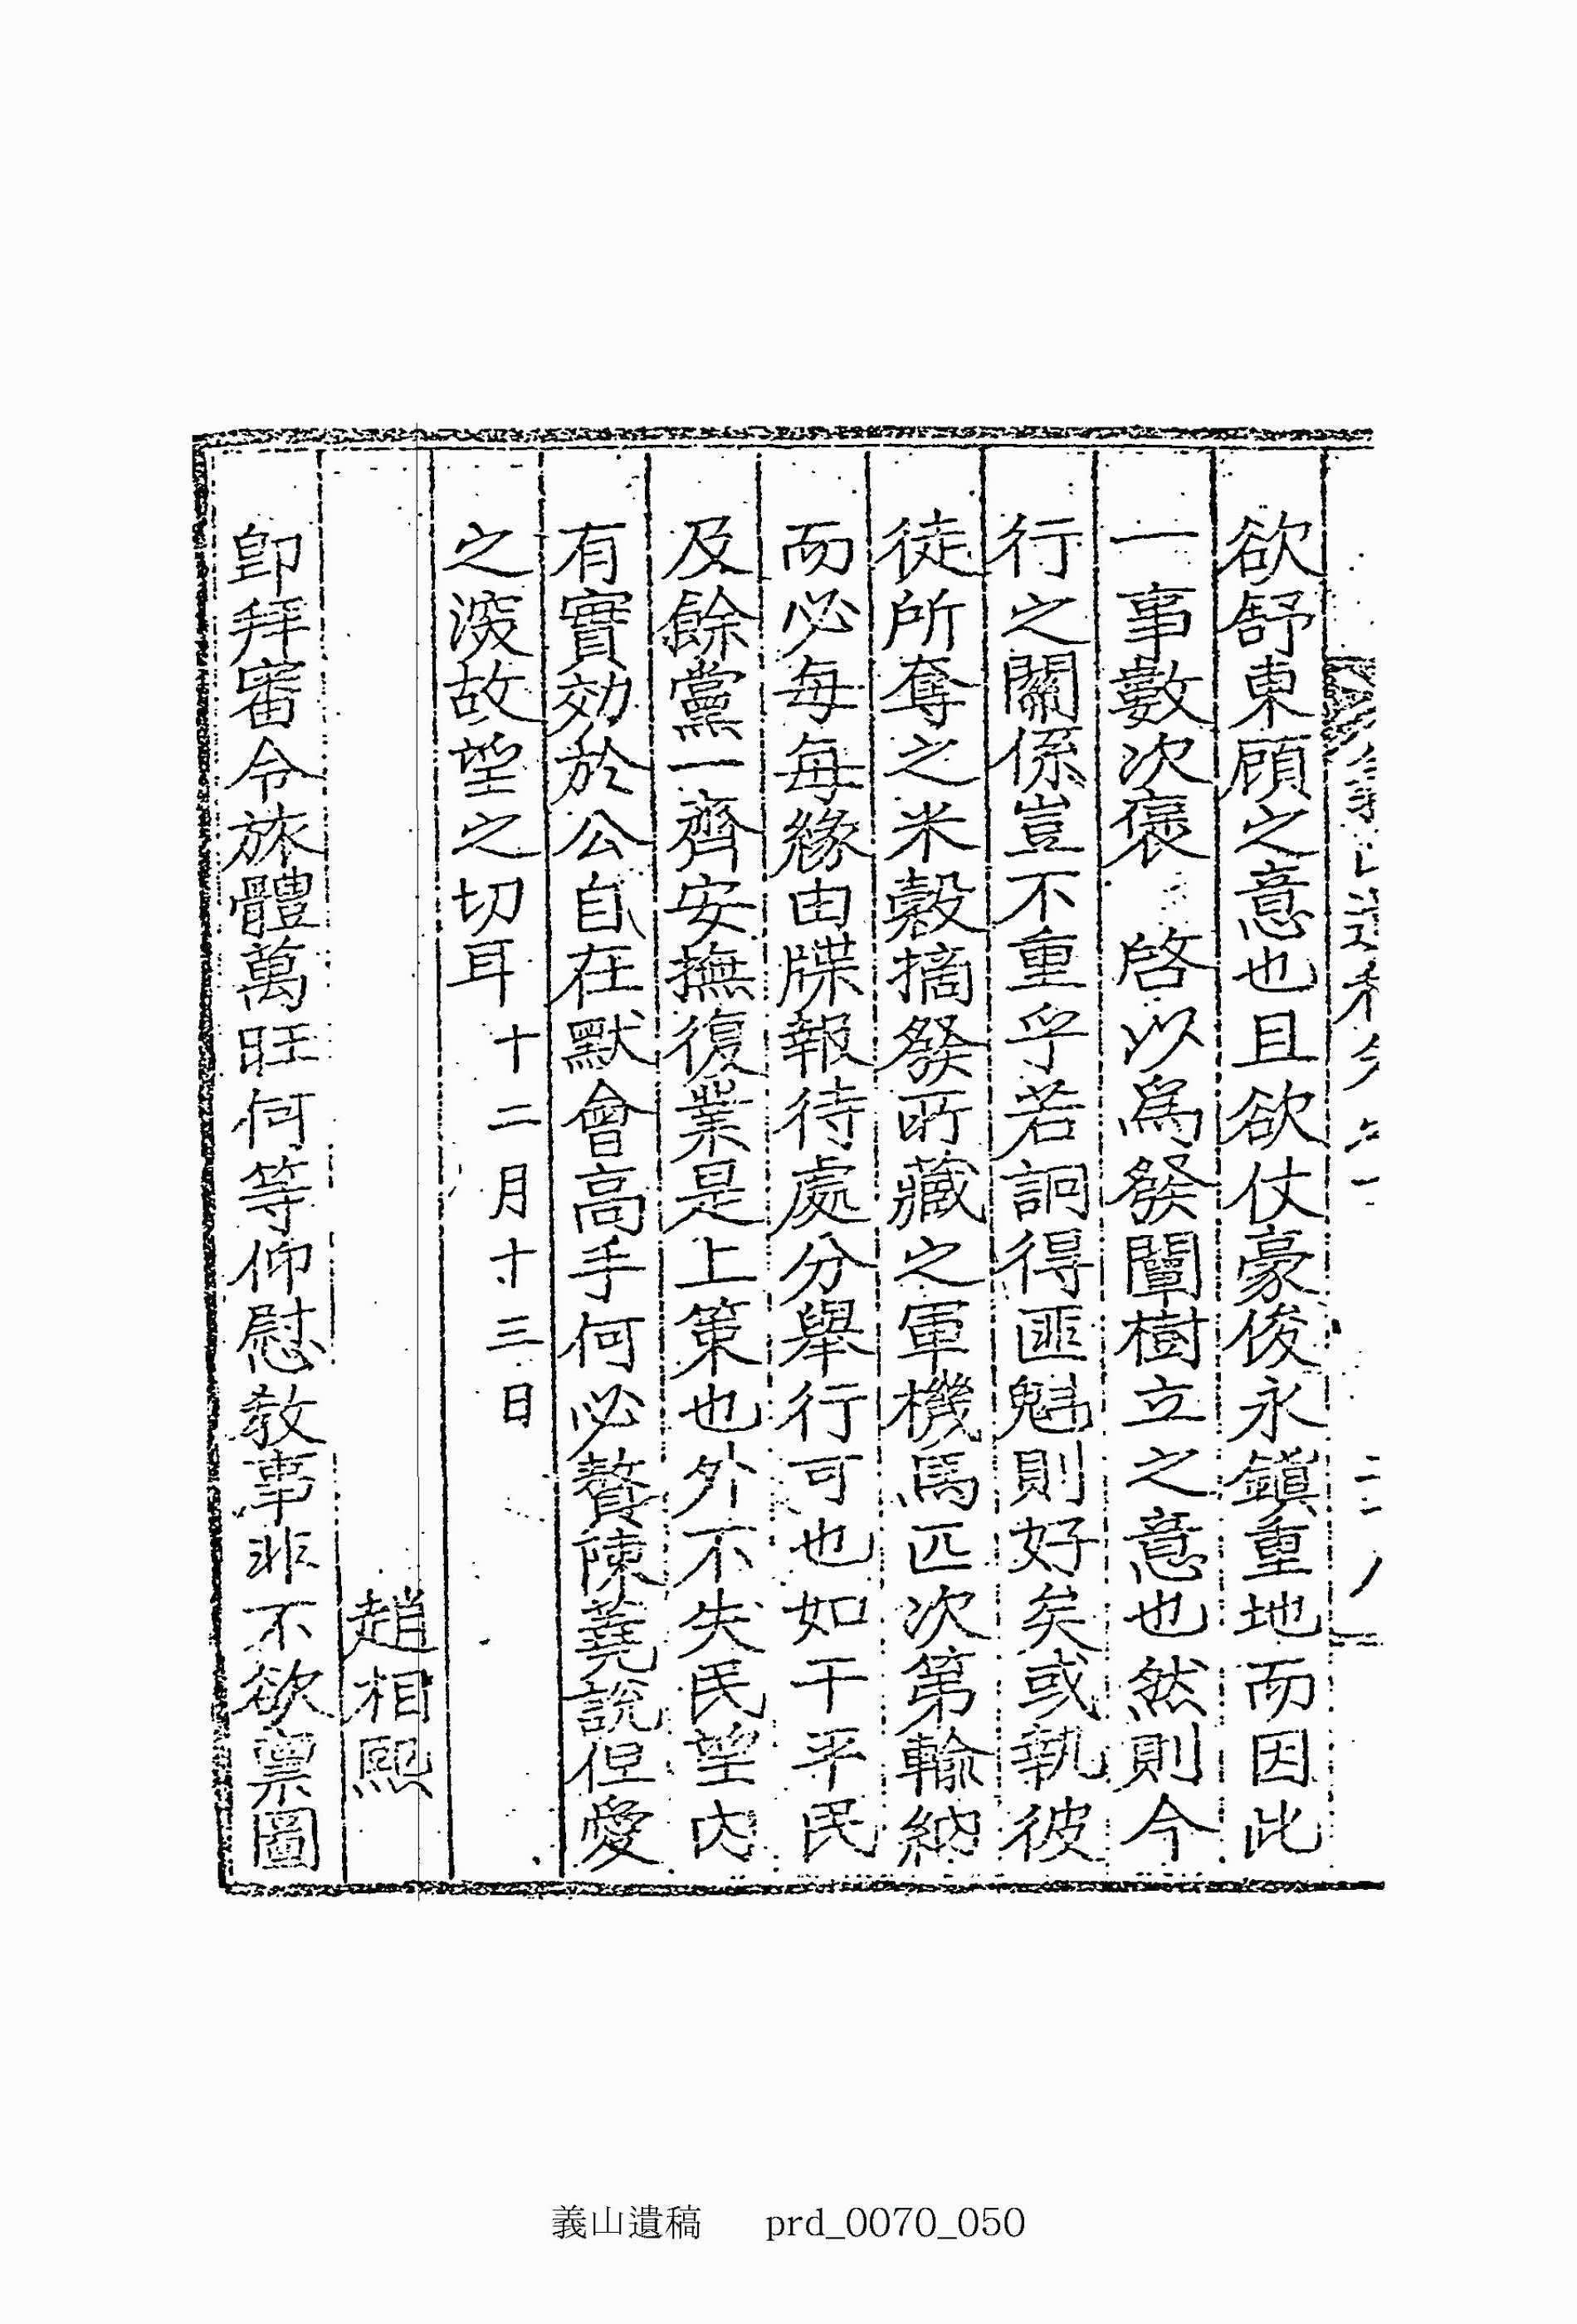 欲舒東顧之意也且欲仗豪俊永鎭重地而因此
一事數次褒 啓以爲發闡樹立之意也然則今
行之關係豈不重乎若詗得匪魁則好矣或執彼
徒所奪之米穀摘發所藏之軍機馬匹次第輸納
而必每每緣由牒報待處分擧行可也如干平民
及餘黨一齊安撫復業是上策也外不失民望內
有實効於公自在默會高手何必贅陳蕘說但愛
之深故望之切耳十二月十三日
趙相熙
卽拜審令旅體萬旺何等仰慰敎事非不欲稟圖
義山遺稿 prd_0070_050